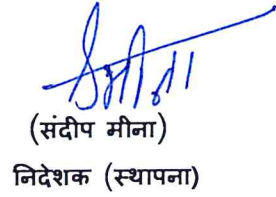 (संदीप मीना)
निदेशक (स्थापना)